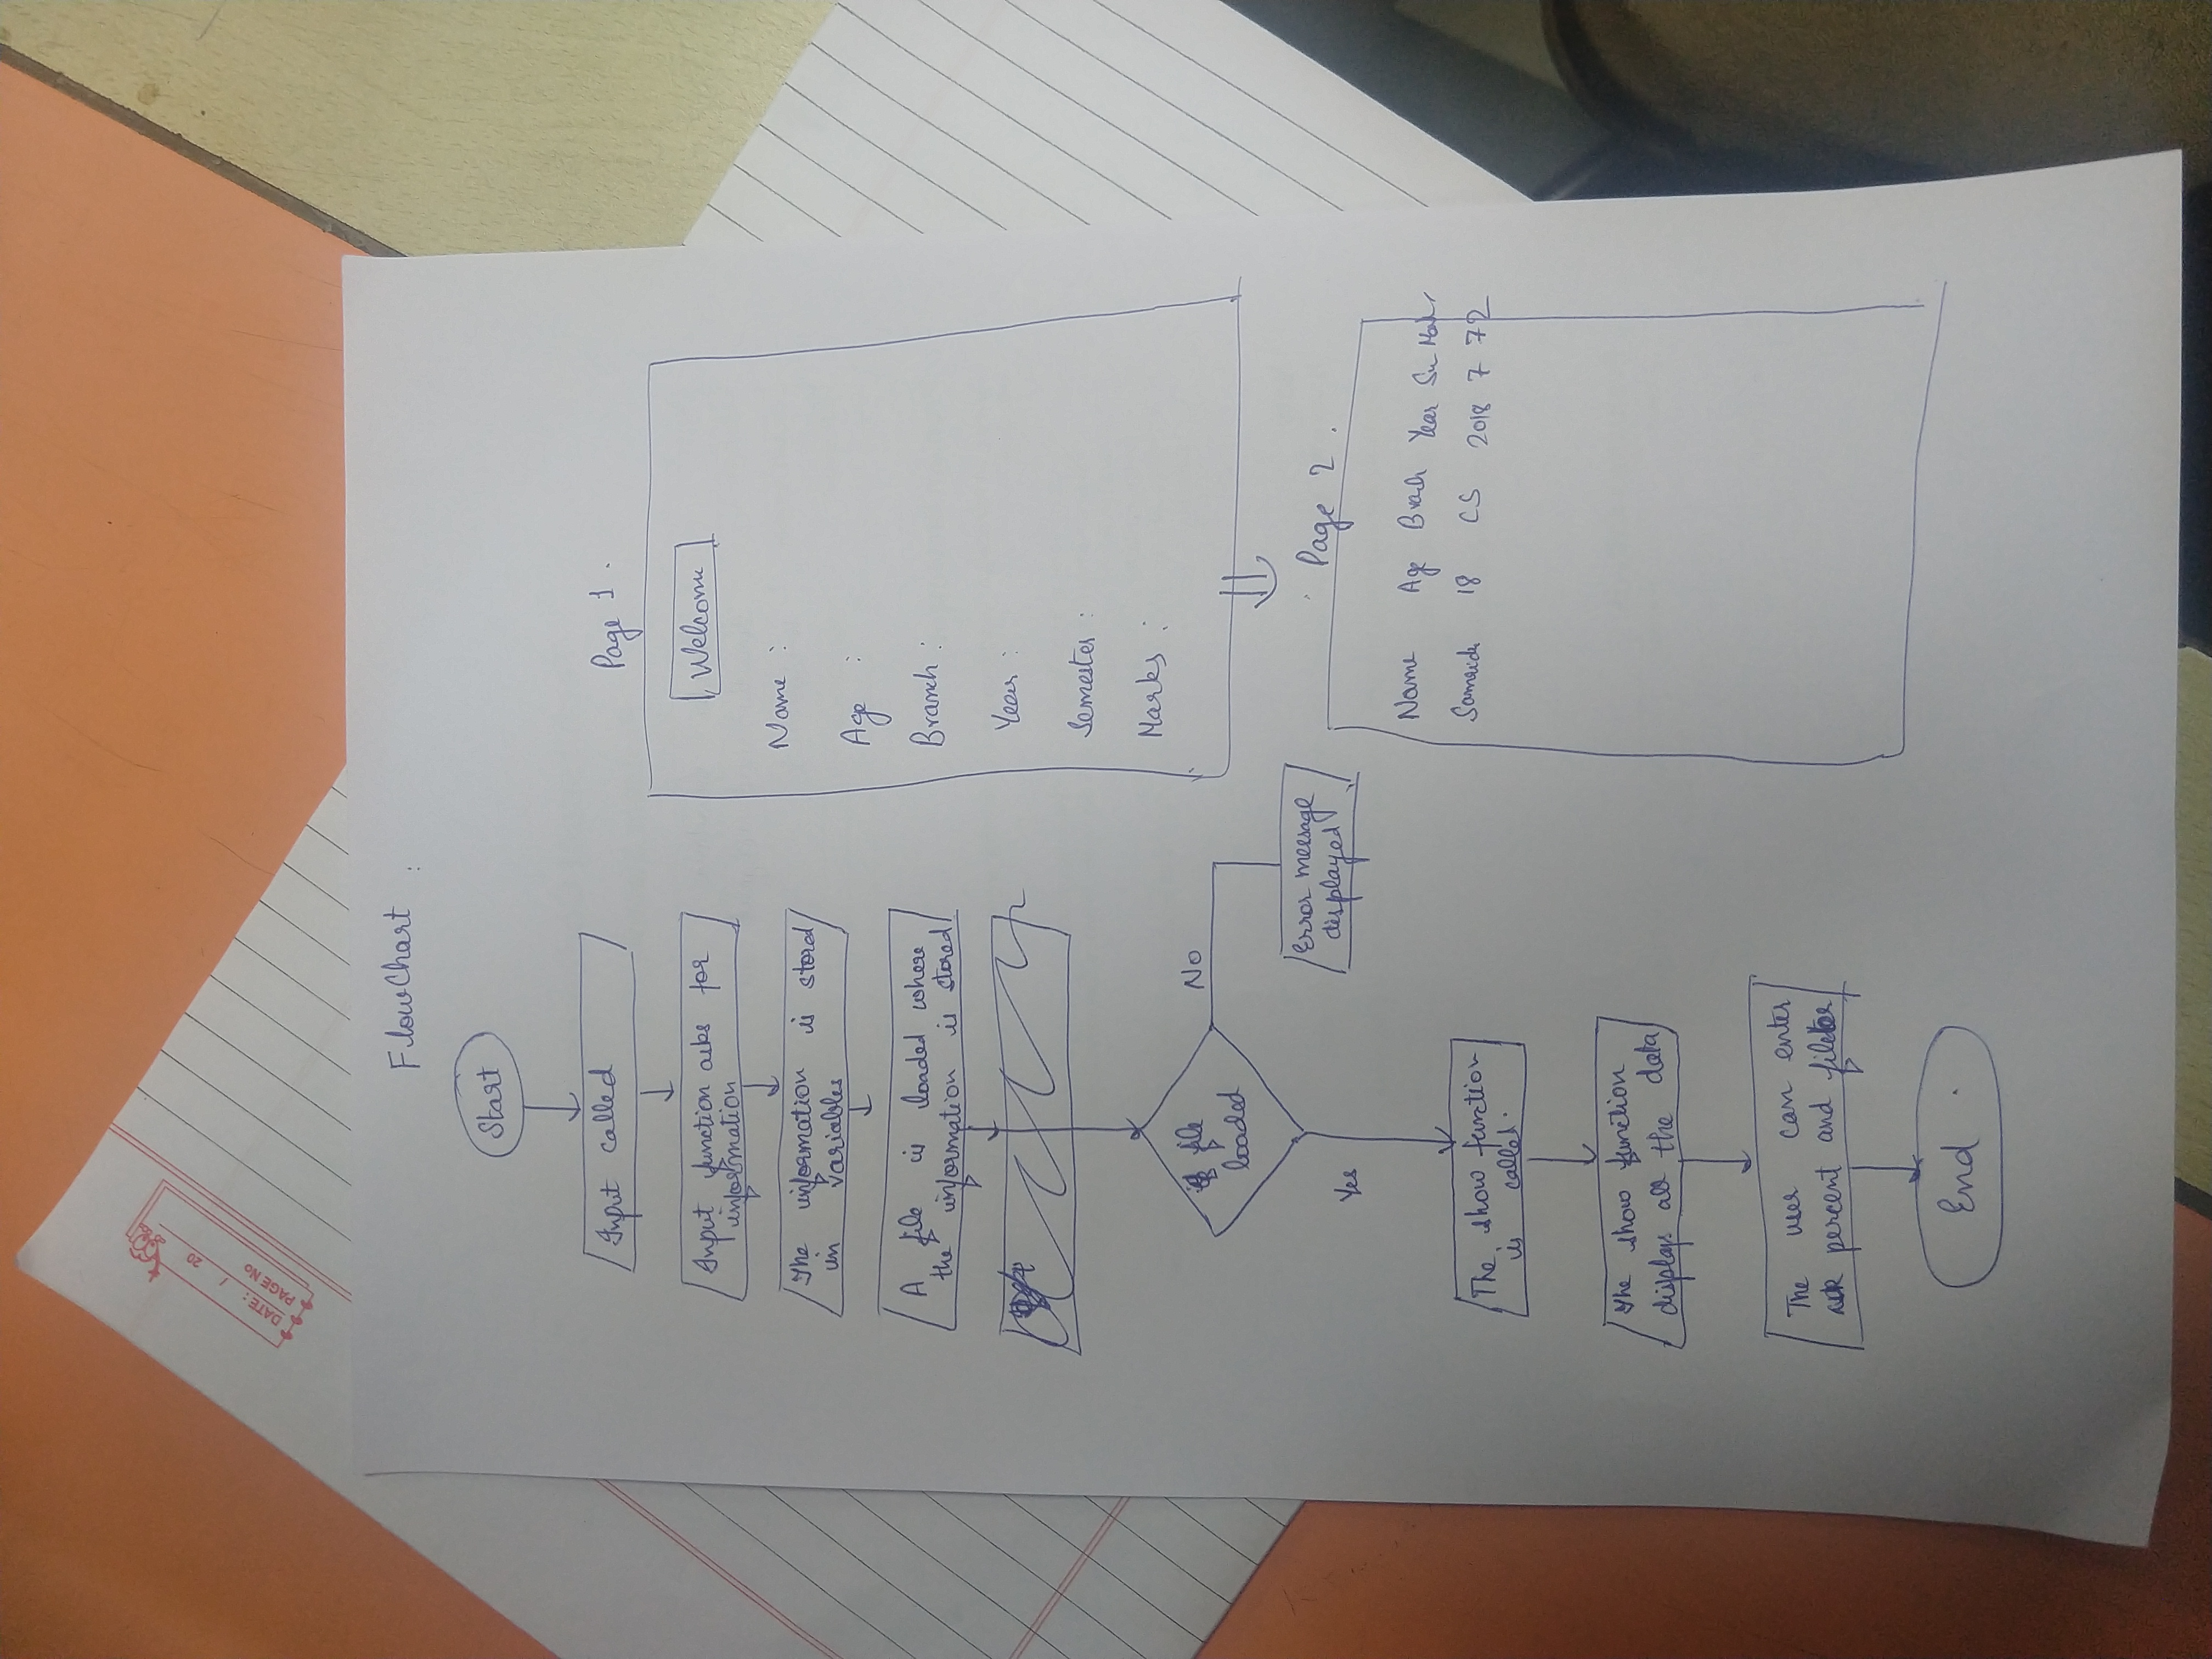 DATE: / 20
PAGE No
FlowChart :
Start
Input called
Input function asks for
information
The information is stored
in variables
A file is loaded where
the information is stored
if file
loaded
No
Error message
displayed
Yes
The show function
is called.
The show function
displays all the data
The user can enter
percent and filter
End
Page 1.
Welcome
Name :
Age :
Branch :
Year :
Semester :
Marks :
Page 2.
Name Age Brach Year
18 CS 2018 7 72